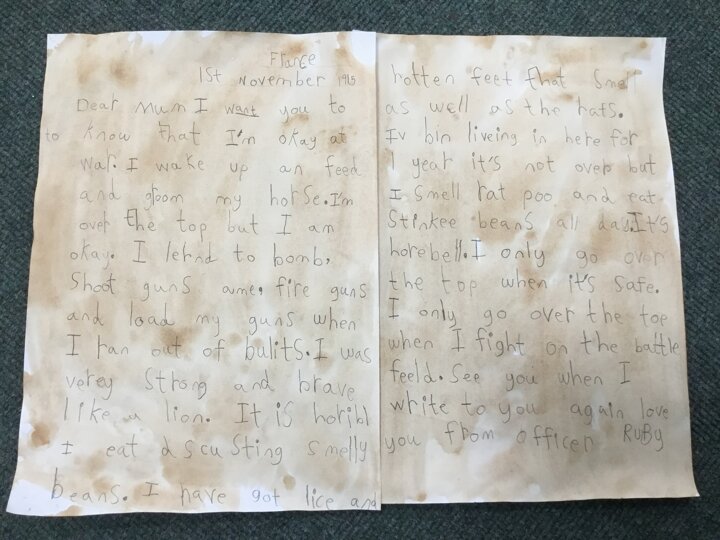 France
1st November 1915
Dear Mum I want you to
to know that I'm okay at
war. I wake up an feed
and groom my horse. I'm
over the top but I am
okay. I lernd to bomb,
Shoot guns ame, fire guns
and load my guns when
I ran out of bulits. I was
verey strong and brave
like a lion. It is horibl
I eat dscusting smelly
beans. I have got lice and
rotten feet that smell
as well as the rats.
Iv bin liveing in here for
1 year it's not over but
I smell rat poo and eat
Stinkee beans all day. It's
horebell. I only go over
the top when it's safe.
I only go over the top
when I fight on the battle
feeld. See you when I
write to you again love
you from officer Ruby